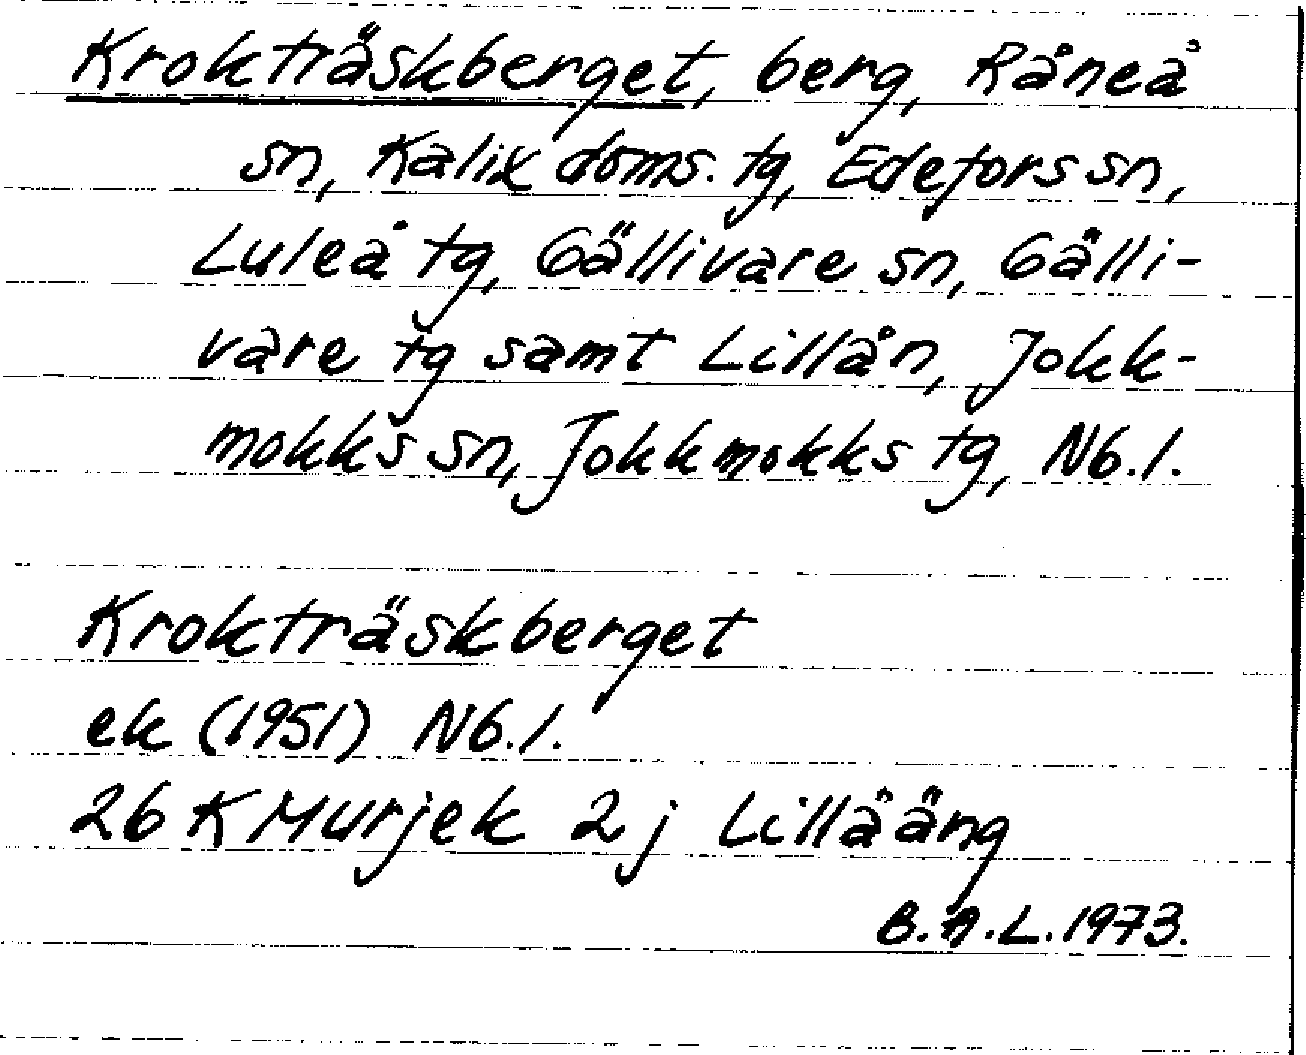 Krokträskberget, berg, Råneå
sn, Kalix doms. tg, Edefors sn,
Luleå tg, Gällivare sn, Gälli-
vare tg samt Lillån, Jokk-
mokks sn, Jokkmokks tg, Nb.l.
Krokträskberget
ek (1951) Nb.l.
26 K Murjek 2 j Lillåäng
B.A.L. 1973.